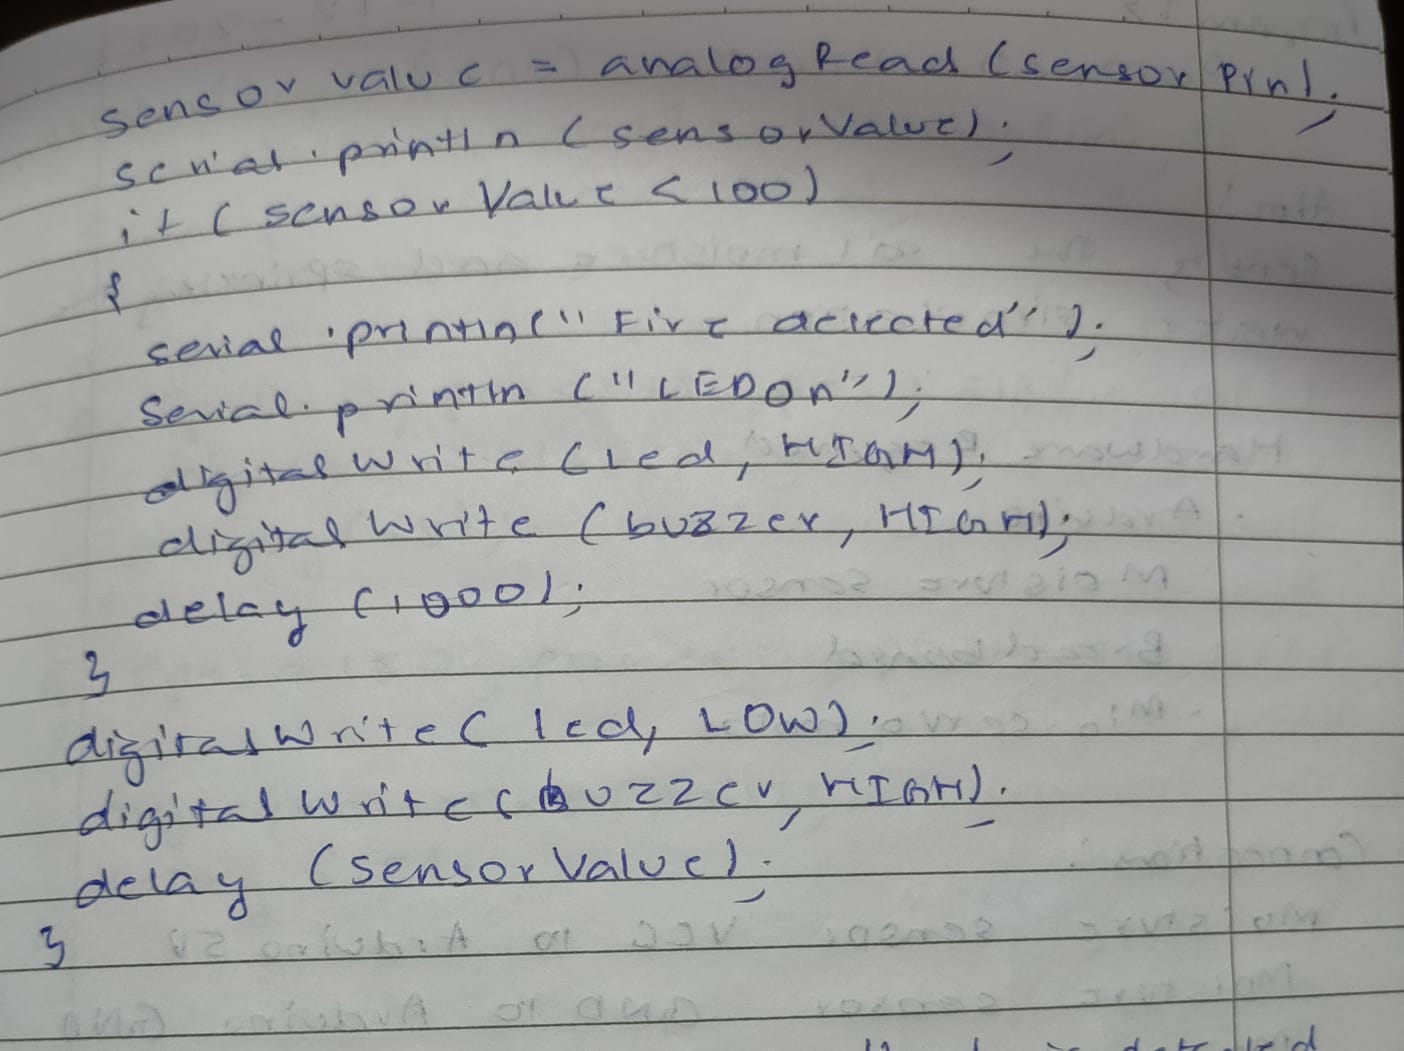 sensor value = analogRead (sensor Pin);
serial.println (sensorValue);
if (sensor Value < 100)
{
serial.println("Fire detected");
Serial.println ("LEDOn");
digital Write (led, HIGH);
digital Write (buzzer, HIGH);
delay (1000);
}
digital Write (led, LOW);
digital Write (buzzer, HIGH);
delay (sensorValue);
}